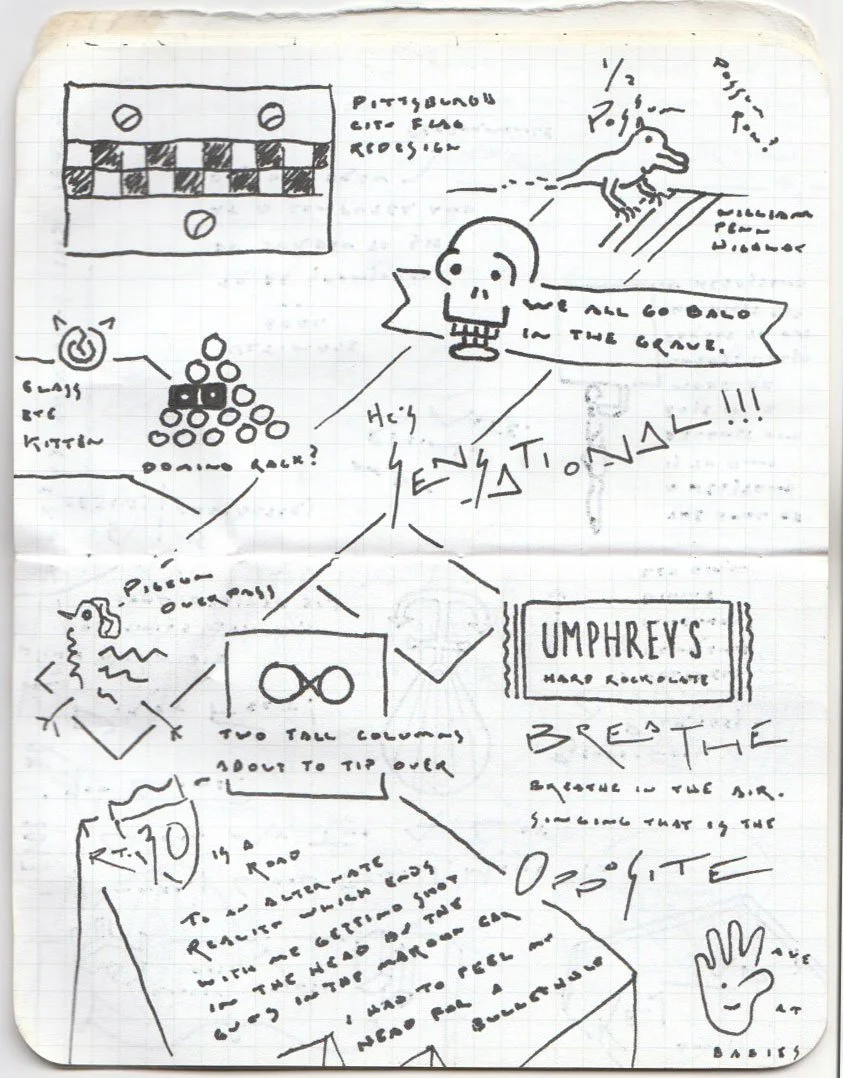 PITTSBURGH
CITY FLAG
REDESIGN
1/2
POSSUM
POSSUM
TOM?
WILLIAM
PENN
HIGHWAY
WE ALL GO BALD
IN THE GRAVE.
GLASS
EYE
KITTEN
DOMINO RACK?
HE'S
SENSATIONAL!!!
PIGEON
OVERPASS
UMPHREY'S
HARD ROCKOLATE
TWO TALL COLUMNS
ABOUT TO TIP OVER
BREATHE
BREATHE IN THE AIR.
SINGING THAT IS THE
OPPOSITE
RT. 30 IS A
ROAD
TO AN ALTERNATE
REALITY WHICH ENDS
WITH ME GETTING SHOT
IN THE HEAD BY THE
GUYS IN THE MAROON CAR
I HAD TO FEEL MY
HEAD FOR A
BULLETHOLE
WAVE
AT
BABIES